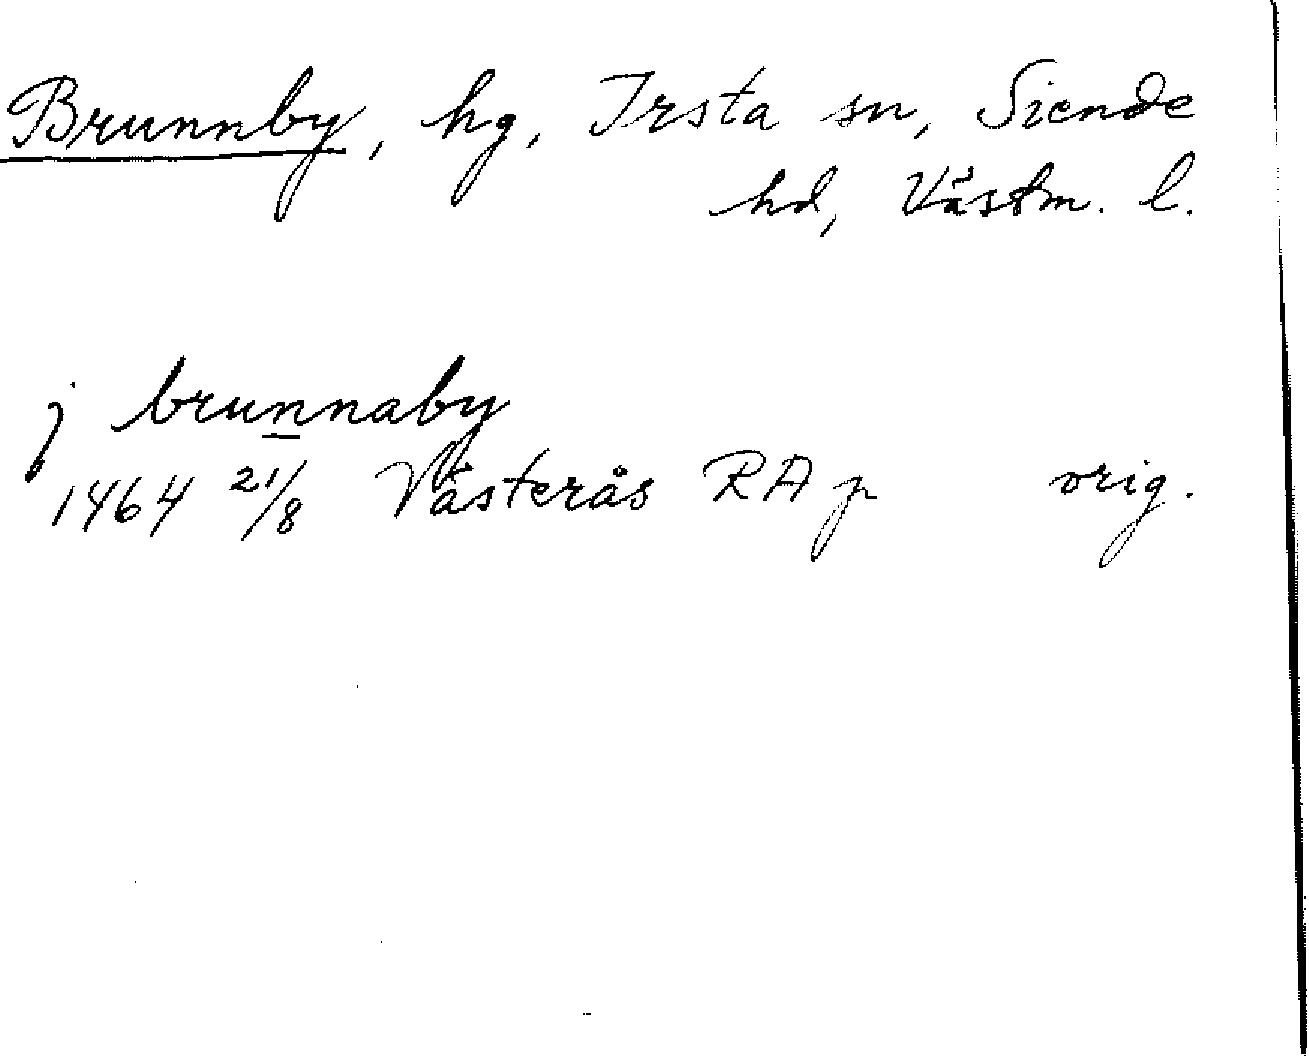 Brunnby, hg, Irsta sn, Siende
hd, Västm. l.
j brunnaby
1464 21/8 Västerås RAp orig.